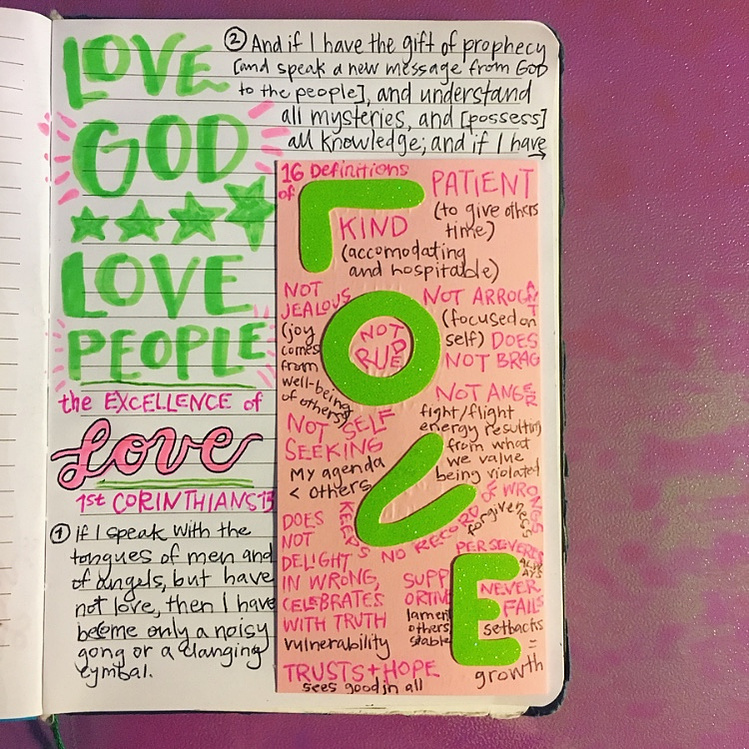 LOVE
GOD
LOVE
PEOPLE
the EXCELLENCE of
Love
1st CORINTHIANS 13
① if I speak with the
tongues of men and
of angels, but have
not love, then I have
become only a noisy
gong or a clanging
cymbal.
② And if I have the gift of prophecy
[and speak a new message from God
to the people], and understand
all mysteries, and [possess]
all knowledge; and if I have
16 Definitions
of
LOVE
PATIENT
(to give others
time)
KIND
(accomodating
and hospitable)
NOT
JEALOUS
(joy
comes
from
well-being
of others)
NOT
RUDE
NOT ARROGANT
(focused on
self) DOES
NOT BRAG
NOT ANGER
fight/flight
energy resulting
from what
we value
being violated
NOT SELF
SEEKING
My agenda
< others
KEEPS
NO RECORD OF WRONGS
forgiveness
DOES
NOT
DELIGHT
IN WRONG,
CELEBRATES
WITH TRUTH
vulnerability
SUPP
ORTIVE
lament
others
stable
PERSEVERES
ALW
AYS
NEVER
FAILS
setbacks
=
growth
TRUSTS + HOPE
sees good in all